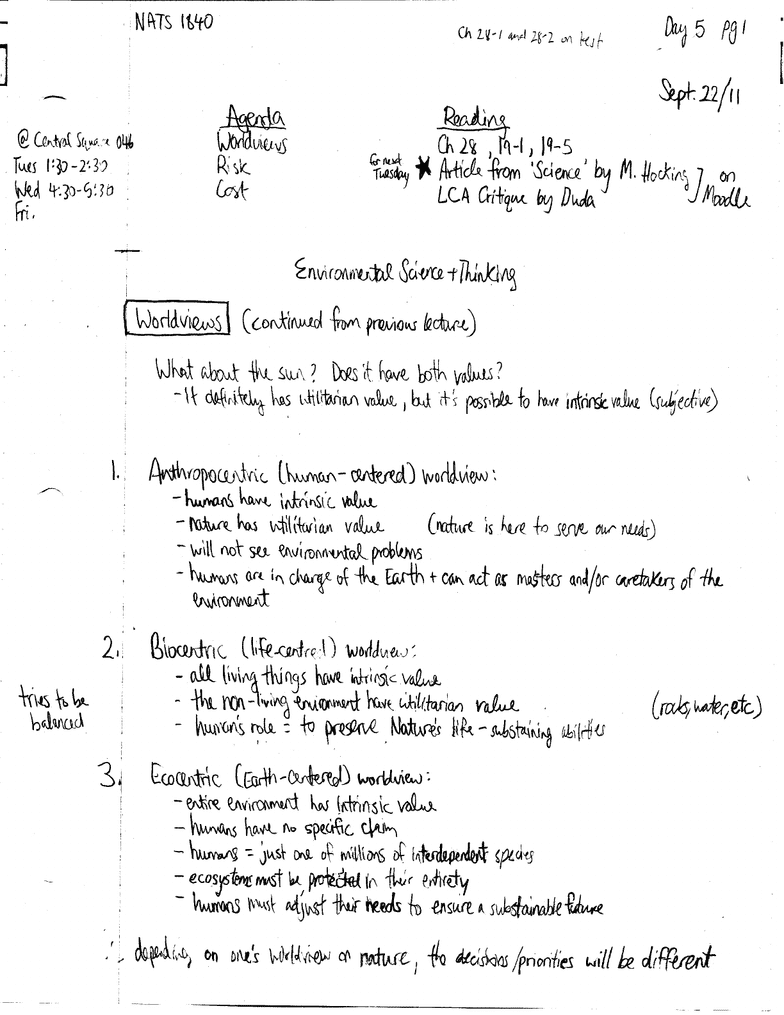 NATS 1840
Ch 28-1 and 28-2 on test
Day 5 pg 1
Sept. 22/11
@ Central Square 046
Tues 1:30-2:30
Wed 4:30-5:30
Fri.
Agenda
Worldviews
Risk
Cost
Reading
Ch 28, 19-1, 19-5
for next Tuesday ★ Article from 'Science' by M. Hocking ] on Moodle
LCA Critique by Duda
Environmental Science + Thinking
Worldviews (continued from previous lecture)
What about the sun? Does it have both values?
- It definitely has utilitarian value, but it's possible to have intrinsic value (subjective)
1. Anthropocentric (human-centered) worldview:
- humans have intrinsic value
- nature has utilitarian value (nature is here to serve our needs)
- will not see environmental problems
- humans are in charge of the Earth + can act as masters and/or caretakers of the
environment
2. Biocentric (life-centred) worldview:
- all living things have intrinsic value
- the non-living enironment have utilitarian value (rocks, water, etc)
- human's role = to preserve Nature's life-substaining abilities
tries to be
balanced
3. Ecocentric (Earth-centered) worldview:
- entire environment has intrinsic value
- humans have no specific claim
- humans = just one of millions of interdependent species
- ecosystems must be protected in their entirety
- humans must adjust their needs to ensure a substainable future
∴ depending on one's worldview on nature, the decisions/priorities will be different